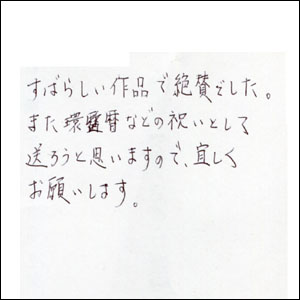 すばらしい作品で絶賛でした。
また環暦などの祝いとして
送ろうと思いますので、宜しく
お願いします。